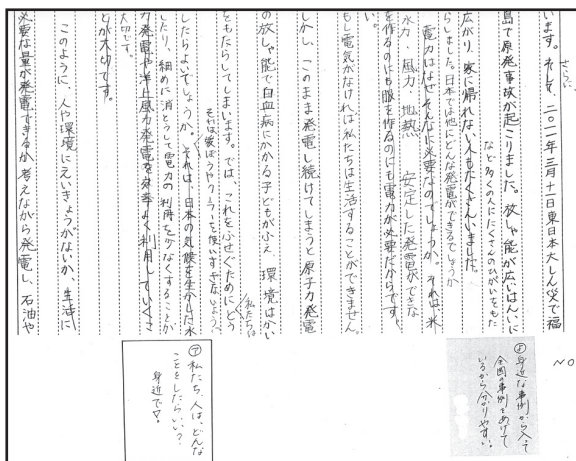 います。そして、二〇一一年三月十一日東日本大しん災で福
さらに、
島で原発事故が起こりました。放しゃ能が広いはんいに
広がり、家に帰れない人もたくさんいました。
など多くの人にたくさんのひがいをもた
らしました。日本では他にどんな発電ができるでしょうか
電力はなぜそんなに必要なのでしょうか。それは、米
水力・風力・地熱 安定した発電ができな
を作るのにも服を作るのにも電力が必要だからです。
い。
もし電気がなければ私たちは生活することができません。
しかし、このまま発電し続けてしまうと原子力発電
の放しゃ能で白血病にかかる子どもがふえ 環境はかい
ともたらしてしまいます。では、これをふせぐためにどう
私たちは
したらよいでしょうか。それは、日本の気候を生かした水
したり、細めに消とうして電力の利用を少なくすることが
力発電や洋上風力発電を効率よく利用していくこ
大切です。
とが大切です。
このように、人や環境にえいきょうがないか、生活に
必要な量が発電できるか考えながら発電し、石油や
NO
よ 身近な事例から入って
全国の事例をあげて
いるから分かりやすい。
ア 私たち、人は、どんな
ことをしたらいい?
身近で▽。